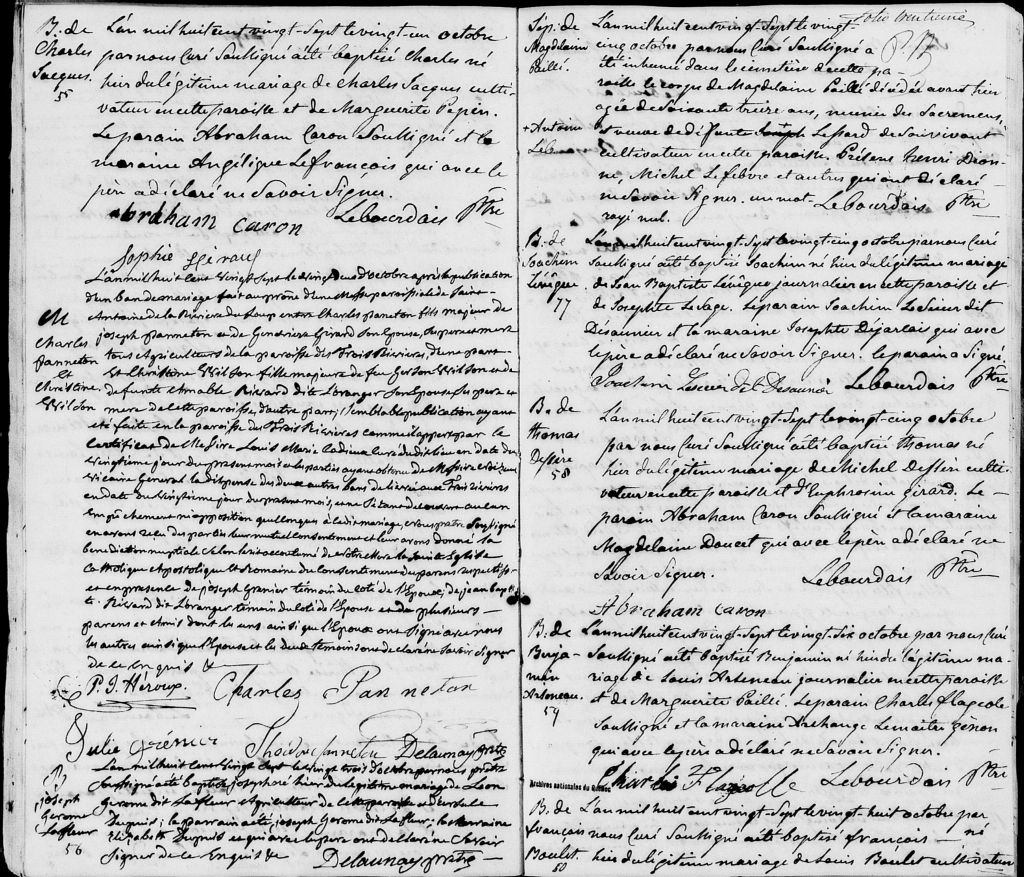 B. de Charles Jacques. 55
L'an mil huit cent vingt-Sept le vingt-un octobre
par nous Curé Soussigné a été baptisé Charles né
hier du légitime mariage de Charles Jacques culti-
vateur en cette paroisse et de Marguerite Pepin.
Le parain Abraham Caron Soussigné et la
maraine Angélique Lefrançois qui avec le
pèr a déclaré ne Savoir Signer.
Abraham Caron Lebourdais Ptre
M Charles Panneton Et Christine Wilson
L'an mil huit cent vingt Sept le vingt deux d'octobre après la publication
d'un ban de mariage fait au prône d'une Messe paroissiale de Saint-
Antoine de la Rivière du Loup entre Charles Panneton fils majeur de
joseph panneton et de Geneviève Girard Son Epouse, Ses père et mere
tous Agriculteurs de la paroisse des Trois Rivieres, d'une part
et Christine Wilson fille majeure de feu Gerson Wilson et de
defunte Rivard dite Loranger Son Epouse Ses père et
mere de cette paroisse d'autre part; Semblable publication ayant
été faite en la paroisse des Trois Rivières comme il appert par le
certificat de Messire Louis Marie Cadieux Curé du dit lieu en date du
vingtième jour du present mois et les parties ayant obtenu de Messire
Vicaire General la dispense des deux autres bans
en date du jour du present mois, et ne S'étant decouvert aucun
Empêchement ni opposition quelconque à ledit mariage, Nous prêtre Soussigné
en avons reçu des parties leur mutuel consentement et leur avons donné la
benediction nuptiale selon le rit accoutumé de notre Mere la Sainte Eglise
Catholique Apostolique et Romaine du Consentement des parens respectifs
et en presence de joseph Grenier temoin du coté de l'Epoux; de jean bapt
Rivard dit Loranger temoin du coté de l'Epouse et de plusieurs
parens et Amis dont les uns ainsi que l'Epoux ont Signé avec nous
les autres ainsi que l'Epouse et les deux temoins ont declaré ne Savoir Signer
de ce Enquis &
P. J. Héroux Charles Panneton
Julie Grénier Delaunay ptre
B joseph Gerome Lafleur 56
L'an mil huit cent vingt Sept le vingt trois d'octobre par nous prêtre
Soussigné a été baptisé joseph né hier du légitime mariage de Leon
Gerome dit Lafleur Agriculteur de cette paroisse et d'Ursule
Dupuis; le parrain a été joseph Gerome dit Lafleur; la marraine
Elizabeth Dupuis et qui avec le pere ont declaré ne Savoir
Signer de ce Enquis &
Delaunay ptre
folio trentième
Sép. de Magdelaine Paillé.
L'an mil huit cent vingt-Sept le vingt-
cinq octobre par nous Curé Soussigné a
été inhumé dans le cimetière de cette pa-
roisse le corps de Magdelaine Paillé décédée avant hier
agée de Soixante treize ans, munie des Sacremens,
et veuve de défunt Joseph Lessard de Son vivant
+ Antoine
cultivateur en cette paroisse. Présens henri Dion-
ne, Michel Lefebvre et autres qui ont déclaré
ne Savoir Signer. un mot Lebourdais Ptre
rayé nul.
B. de Joachim Lévêque 57
L'an mil huit cent vingt-Sept le vingt cinq octobre par nous Curé
Soussigné a été baptisé Joachim né hier du légitime mariage
de Jean Baptiste Lévêque journalier en cette paroisse et
de Josephte Lesage. Le parain Joachim Lesieur dit
Desaunier et la maraine Josephte Dejarlai qui avec
le pere a déclaré ne Savoir Signer. le parain a Signé.
Joachim Lesieur dit Desaunié Lebourdais Ptre
B. de thomas 58
L'an mil huit cent vingt-Sept le vingt-cinq octobre
par nous Curé Soussigné a été baptisé thomas né
hier du légitime mariage de Michel culti-
vateur en cette paroisse et d'Euphrosine Girard. Le
parain Abraham Caron Soussigné et la maraine
Magdelaine Doucet qui avec le pèr a déclaré ne
Savoir Signer. Lebourdais Ptre
Abraham Caron
B. de Benja-min Arseneau. 59
L'an mil huit cent vingt-Sept le vingt-Six octobre par nous Curé
Soussigné a été baptisé Benjamin né hier du légitime ma-
riage de Louis Arseneau journalier en cette paroisse
et de Marguerite Paillé. Le parain Charles flageole
Soussigné et la maraine Archange Lemaitre Génon
qui avec le père a déclaré ne Savoir Signer.
Lebourdais Ptre
Archives nationales du Québec
B. de français Boulet. 60
L'an mil huit cent vingt-Sept le vingt-huit octobre par
nous Curé Soussigné a été baptisé français né
hier du légitime mariage de Louis Boulet cultivateur